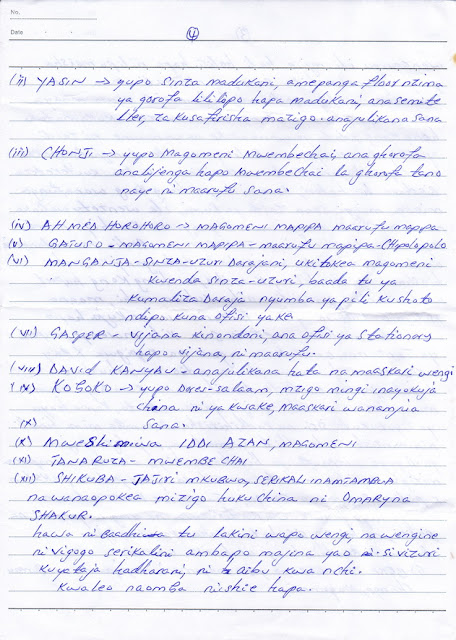 No.
Date
4
(ii) YASIN → yupo sinza madukani, amepanga floor nzima
ya gorofa lililopo hapa madukani, ana semite
ller, za kusafirisha mizigo. anajulikana sana
(iii) CHONJI → yupo Magomeni Mwembechai, ana ghorofa
analijenga hapo Mwembechai la ghorofa tano
naye ni maarufu sana.
(iv) AHMED HOROHORO → MAGOMENI MAPIPA maarufu mapipa
(v) GATUSO - MAGOMENI MAPIPA - maarufu mapipa - Chipolopolo
(vi) MANGANJA - SINZA-UZURI Darajani, ukitokea magomeni
kwenda sinza-uzuri, baada tu ya
kumaliza Daraja nyumba ya pili kushoto
ndipo kuna ofisi yake
(vii) GASPER - vijana kinondoni, ana ofisi ya stationery
hapo vijana, ni maarufu.
(viii) DAVID KANYAU - anajulikana hata na maaskari wengi
(ix) KOBOKO → yupo Dares-salaam, mzigo mingi inayokuja
china ni ya kwake, maaskari wanamjua
(x) sana.
(x) Mweshimiwa IDDI AZAN, MAGOMENI
(xi) TANARUZA - MWEMBE CHAI
(xii) SHIKUBA - TAJIRI MKUBWA, SERIKALI INAMTAMBUA
na wanaopokea mizigo huku China ni OMARY na
SHAKUR.
hawa ni Baadhi tu lakini wapo wengi, na wengine
ni vigogo serikalini ambapo majina yao si vizuri
kuyataja hadharani, ni aibu kwa nchi.
kwa leo naomba niishie hapa.